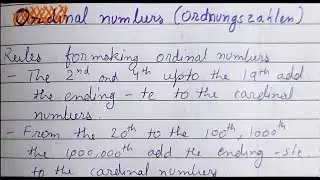 Ordinal numbers (Ordnungszahlen)
Rules for making ordinal numbers
- The 2nd and 4th upto the 19th add
the ending - te to the cardinal
numbers.
- From the 20th to the 100th, 1000th
the 1000,000th add the ending -ste
to the cardinal numbers